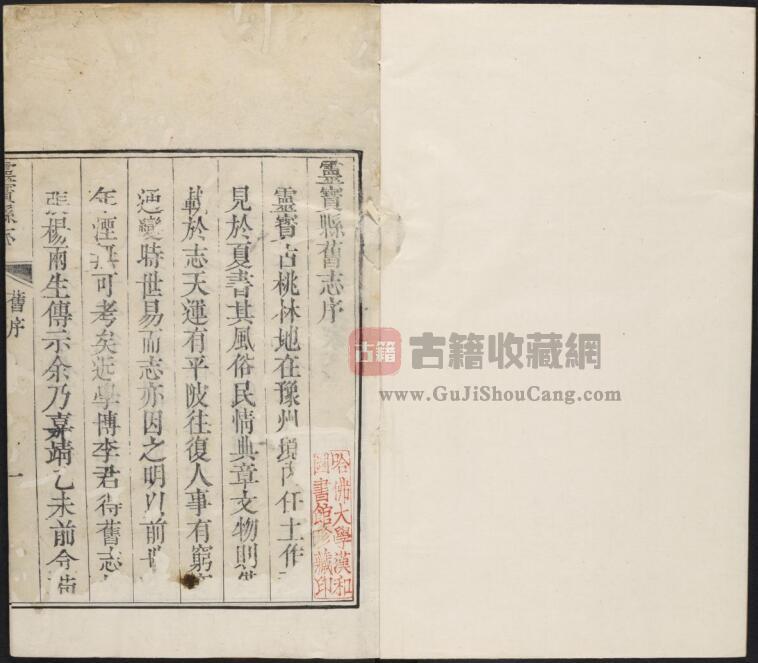 靈寳縣舊志序
靈寳古桃林地在豫州 任土作
見於夏書其風俗民情典章文物則
載於志天運有平陂往復人事有窮
通變時世易而志亦因之明以前
年湮 可考矣近學博李君得舊志
張楊兩生傳示余乃嘉靖乙未前令
靈寳縣志
舊序
一
哈佛大學漢和
圖書館珍藏印
古籍
古籍收藏網
www.GuJiShouCang.com